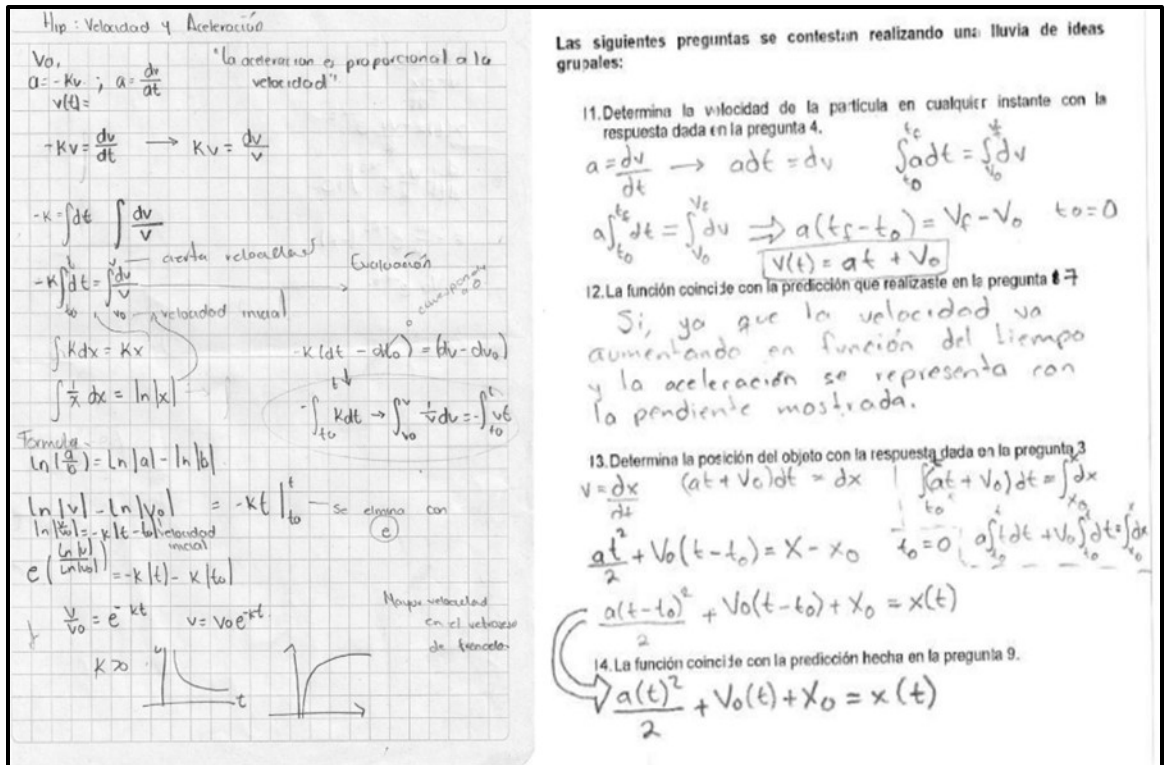 Hip: Velocidad y Aceleración
Vo.
"la aceleracion es proporcional a la
velocidad"
a = -Kv ; a = dv/dt
v(t) =
-Kv = dv/dt → Kv = dv/v
-K = ∫dt ∫ dv/v
cierta velocidad
-K∫dt = ∫dv/v
t to v vo
velocidad inicial
Evaluación
∫ Kdx = Kx
∫ 1/x dx = ln|x|
-K(dt - dto) = (dv - dvo)
Formula
ln(a/b) = Ln|a| - ln|b|
ln|v| - Ln|vo| = -kt |t to se elimina con
e
velocidad
inicial
v/vo = e^-kt v = vo e^-kt
Mayor velocidad
en el
de
K>0
t
Las siguientes preguntas se contestan realizando una lluvia de ideas
grupales:
11. Determina la velocidad de la partícula en cualquier instante con la
respuesta dada en la pregunta 4.
a = dv/dt → adt = dv ∫adt = ∫dv
a∫dt = ∫dv ⇒ a(tf - to) = Vf - Vo to = 0
V(t) = at + Vo
12. La función coincide con la predicción que realizaste en la pregunta 7
Si, ya que la velocidad va
aumentando en función del tiempo
y la aceleración se representa con
la pendiente mostrada.
13. Determina la posición del objeto con la respuesta dada en la pregunta 3
v = dx/dt (at + Vo)dt = dx ∫(at + Vo)dt = ∫dx
at²/2 + Vo(t - to) = X - xo to = 0 a∫tdt + Vo∫dt = ∫dx
a(t - to)²/2 + Vo(t - to) + Xo = x(t)
14. La función coincide con la predicción hecha en la pregunta 9.
a(t)²/2 + Vo(t) + Xo = x(t)